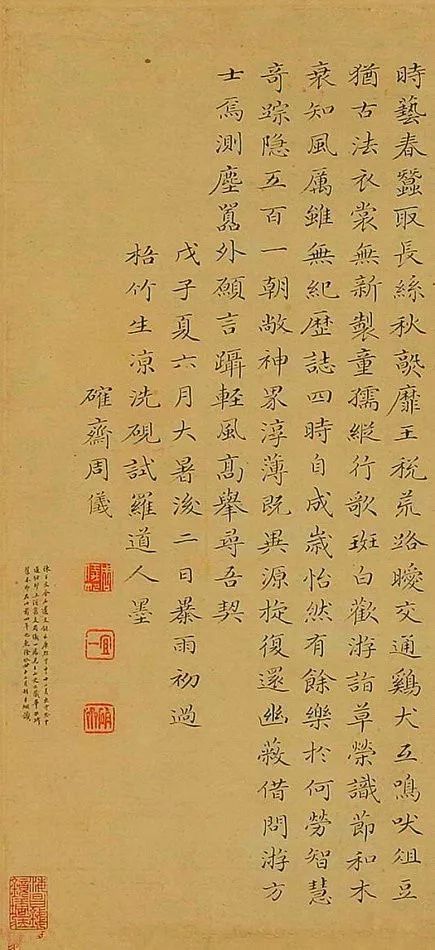 時藝春蠶取長絲秋熟靡王稅荒路曖交通鷄犬互鳴吠俎豆
猶古法衣裳無新製童孺縱行歌斑白歡游詣草榮識節和木
衰知風厲雖無紀歷誌四時自成歲怡然有餘樂於何勞智慧
奇踪隐五百一朝敞神界淳薄既異源旋復還幽蔽借問游方
士焉測塵囂外願言躡輕風高舉尋吾契
戊子夏六月大暑後二日暴雨初過
梧竹生凉洗硯試羅道人墨
確齋周儀